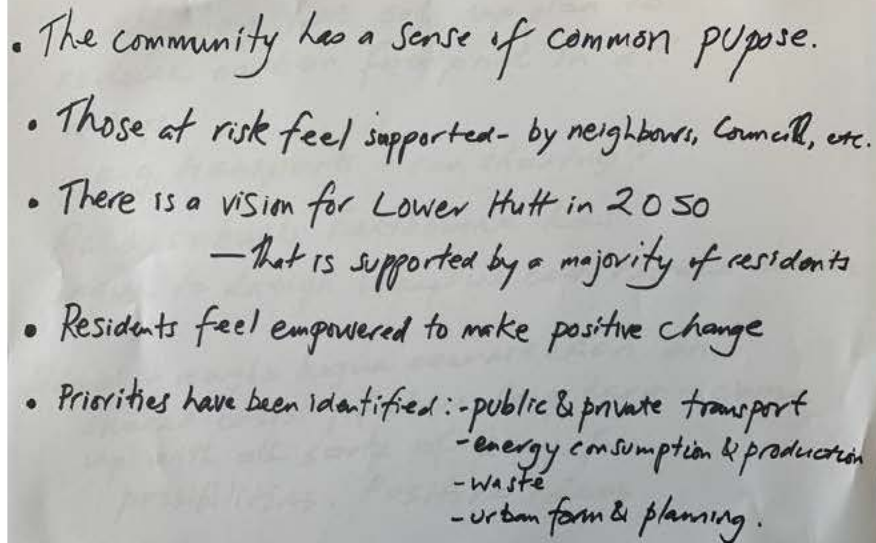 • The community has a sense of common pupose.
• Those at risk feel supported- by neighbours, Council, etc.
• There is a vision for Lower Hutt in 2050
— that is supported by a majority of residents
• Residents feel empowered to make positive change
• Priorities have been identified: - public & private transport
- energy consumption & production
- waste
- urban form & planning.